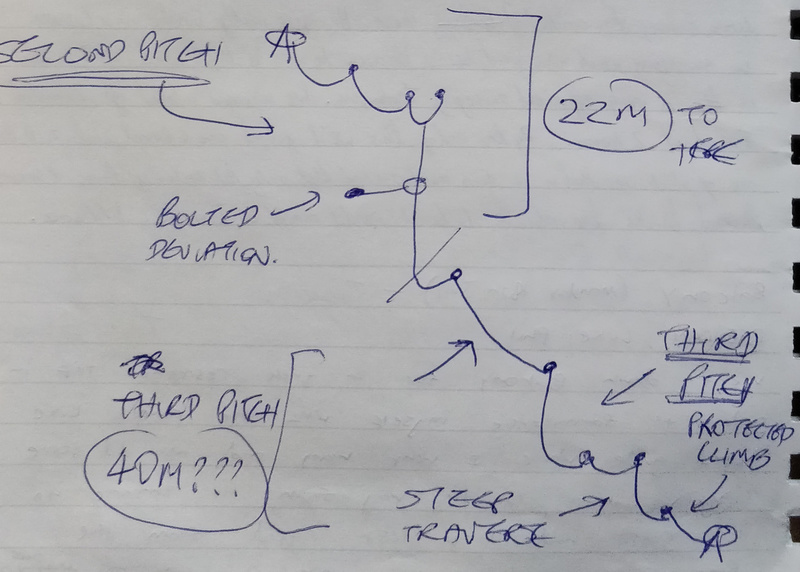 SECOND PITCH
AP
22M TO
BOLTED
DEVIATION.
THIRD
PITCH
PROTECTED
CLIMB
THIRD PITCH
40M???
STEEP
TRAVERSE
AP